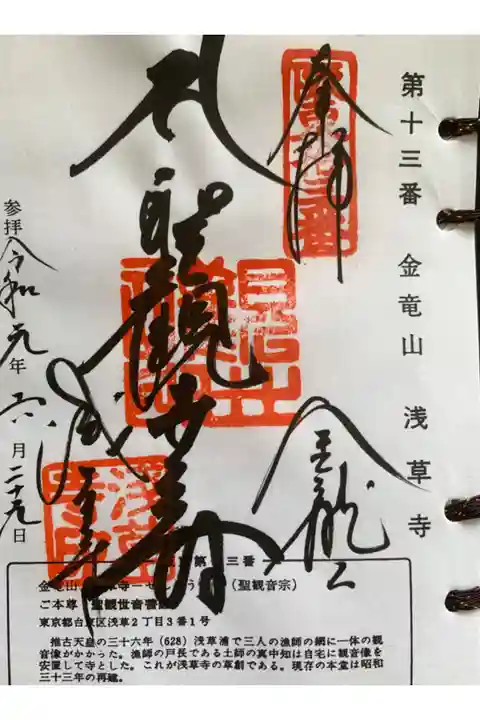 第十三番 金竜山 浅草寺
奉拝
金龍山
聖観世音
浅草寺
参拝令和元年六月二十九日
第 三番
金竜山 (聖観音宗)
ご本尊 聖観世音菩薩
東京都台東区浅草2丁目3番1号
推古天皇の三十六年(628)浅草浦で三人の漁師の網に一体の観
音像がかかった。漁師の戸長である土師の真中知は自宅に観音像を
安置して寺とした。これが浅草寺の草創である。現存の本堂は昭和
三十三年の再建。